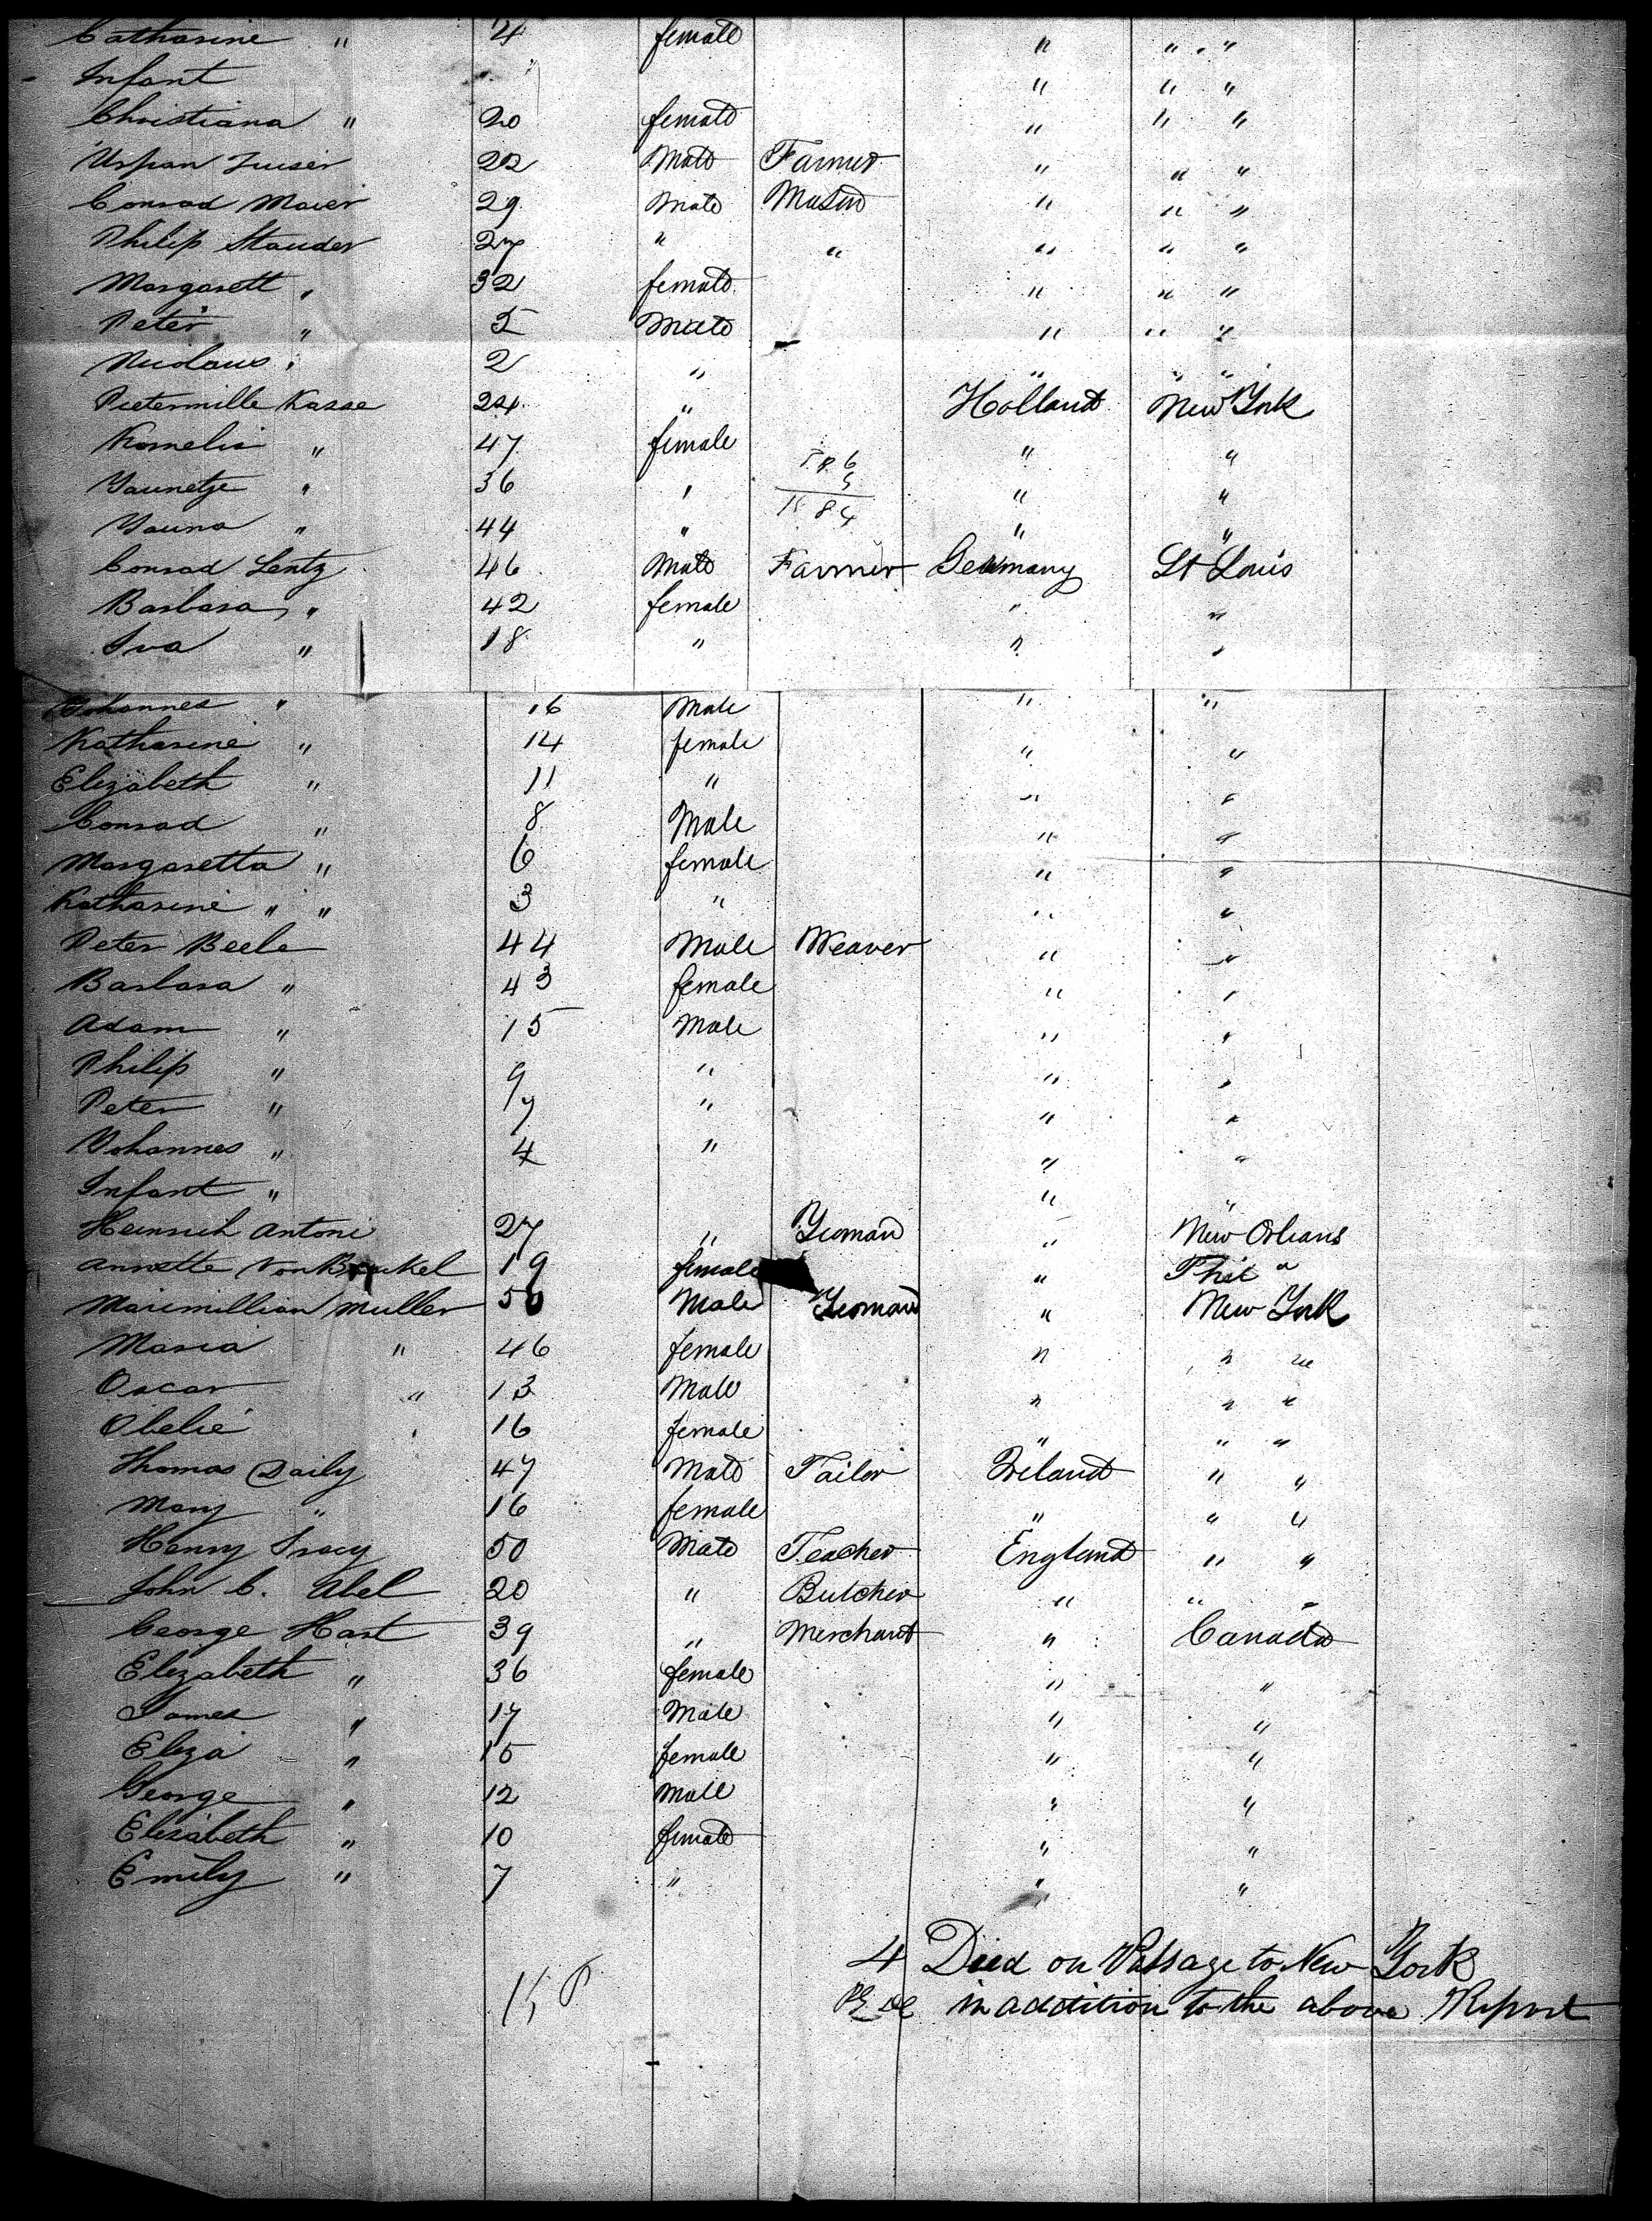 Catharine " 4 female " " "
Infant " " "
Christiana " 20 female " " "
22 Male Farmer " " "
Conrad Maier 29 Male Mason " " "
Philip Stauder 27 " " " " "
Margarett " 32 female " " "
Peter " 5 Male " " "
Nicolaus " 2 " " " "
Pietermille Kasse 24 " Holland New York
Kornelia " 47 female " "
Jaunetje " 36 " " "
Jauna " 44 " " "
Conrad Lentz 46 Male Farmer Germany St Louis
Barbara " 42 female " "
Iva " 18 " " "
Johannes " 16 Male " "
Katharine " 14 female " "
Elizabeth " 11 " " "
Conrad " 8 Male " "
Margaretta " 6 female " "
Katharine " " 3 " " "
Peter Beele 44 Male Weaver " "
Barbara " 43 female " "
Adam " 15 Male " "
Philip " 9 " " "
Peter " 7 " " "
Johannes " 4 " " "
Infant " " "
Heinrich Antoni 27 " Yeoman " New Orleans
Annette Von 19 female " Phil a
Maximillian Muller 50 Male Yeoman " New York
Maria " 46 female " " "
Oscar " 13 Male " " "
Obelie " 16 female " " "
Thomas Daily 47 Male Tailor Ireland " "
Mary " 16 female " " "
Henry Tracy 50 Male Teacher England " "
John C. Abel 20 " Butcher " " "
George Hart 39 " Merchant " Canada
Elizabeth " 36 female " "
James " 17 Male " "
Eliza " 15 female " "
George " 12 Male " "
Elizabeth " 10 female " "
Emily " 7 " " "
4 Died on Passage to New York
in addition to the above Report